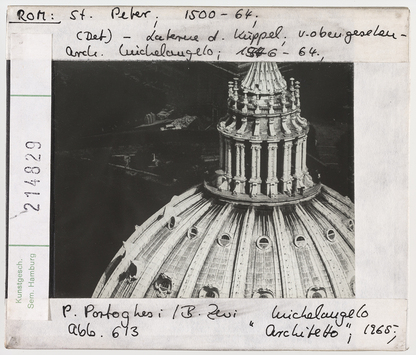 ROM: St. Peter; 1500-64;
(Det) - Laterne d. Kuppel, v. oben gesehen-
Arch. Michelangelo; 1546-64.
214829
Kunstgesch.
Sem. Hamburg
P. Portoghesi / B. Zevi Michelangelo
Abb. 613 "Architetto"; 1965;